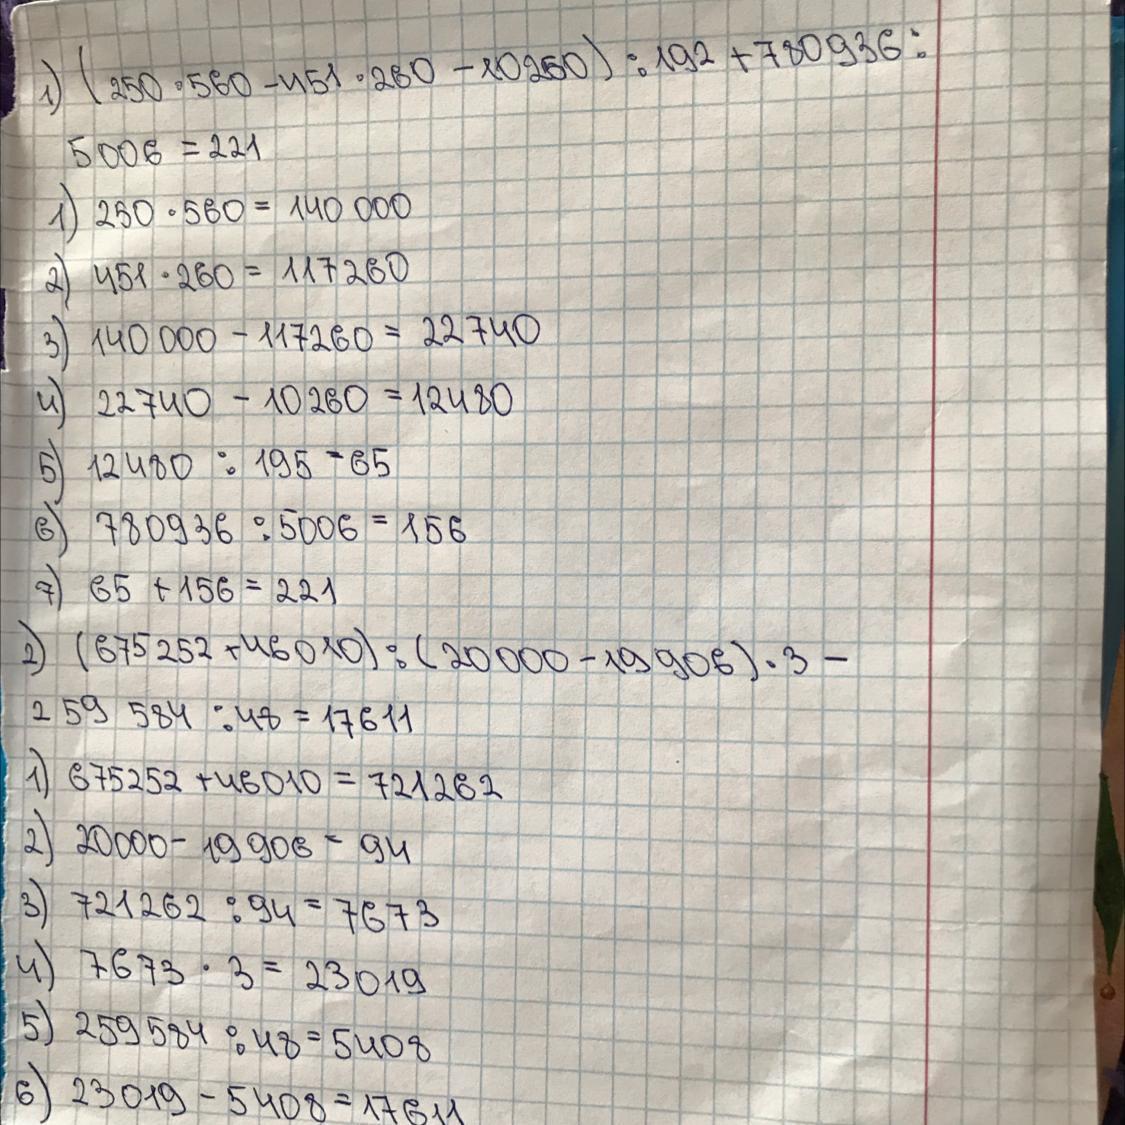 1) (250 · 560 - 451 · 260 - 10260) : 192 + 780936 :
5006 = 221
1) 250 · 560 = 140 000
2) 451 · 260 = 117260
3) 140 000 - 117260 = 22740
4) 22740 - 10260 = 12480
5) 12480 : 195 = 65
6) 780936 : 5006 = 156
7) 65 + 156 = 221
2) (675252 + 46010) : (20000 - 19906) · 3 -
259 584 : 48 = 17611
1) 675252 + 46010 = 721262
2) 20000 - 19906 = 94
3) 721262 : 94 = 7673
4) 7673 · 3 = 23019
5) 259584 : 48 = 5408
6) 23019 - 5408 = 17611